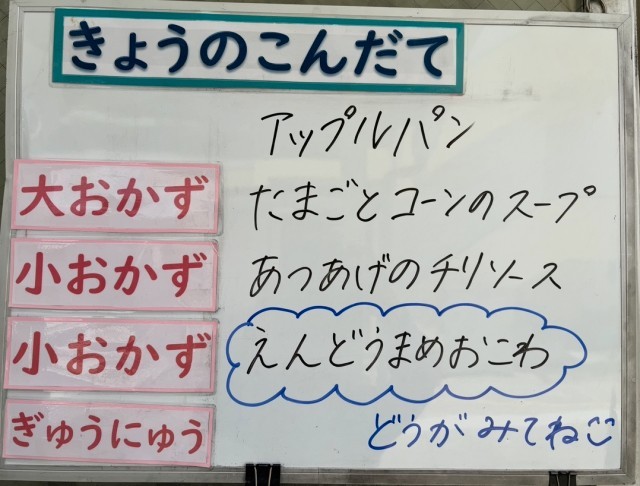 きょうのこんだて
アップルパン
大おかず たまごとコーンのスープ
小おかず あつあげのチリソース
小おかず えんどうまめおこわ
ぎゅうにゅう どうがみてね